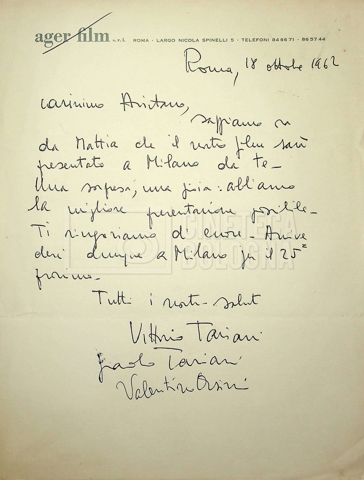 ager film s.r.l. ROMA - LARGO NICOLA SPINELLI 5 - TELEFONI 846671 - 865744
Roma, 18 ottobre 1962
carissimo Aristarco,
sappiamo
da Mattia che il nostro film sarà
presentato a Milano da te -
Una sorpresa, una gioia: abbiamo
la migliore presentazione possibile -
Ti ringraziamo di cuore - Arrive
derci dunque a Milano per il 25
prossimo -
Tutti i nostri saluti
Vittorio Taviani
Paolo Taviani
Valentino Orsini
CINETECA
BOLOGNA